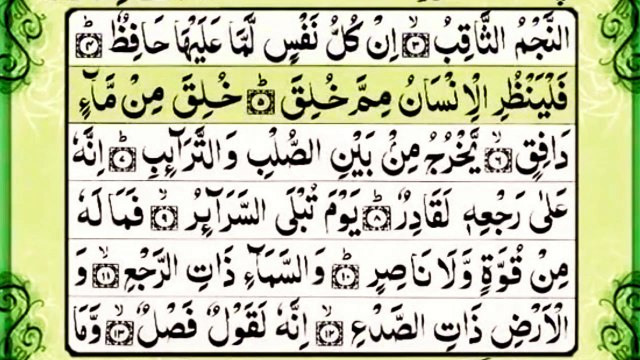 النَّجْمُ الثَّاقِبُ ۙ﴿۳﴾ اِنْ كُلُّ نَفْسٍ لَّمَّا عَلَيْهَا حَافِظٌ ؕ﴿۴﴾
فَلْيَنْظُرِ الْاِنْسَانُ مِمَّ خُلِقَ ؕ﴿۵﴾ خُلِقَ مِنْ مَّآءٍ
دَافِقٍ ۙ﴿۶﴾ يَّخْرُجُ مِنْۢ بَيْنِ الصُّلْبِ وَالتَّرَآئِبِ ؕ﴿۷﴾ اِنَّهٗ
عَلٰى رَجْعِهٖ لَقَادِرٌ ؕ﴿۸﴾ يَوْمَ تُبْلَى السَّرَآئِرُ ۙ﴿۹﴾ فَمَا لَهٗ
مِنْ قُوَّةٍ وَّلَا نَاصِرٍ ؕ﴿۱۰﴾ وَالسَّمَآءِ ذَاتِ الرَّجْعِ ۙ﴿۱۱﴾ وَ
الْاَرْضِ ذَاتِ الصَّدْعِ ۙ﴿۱۲﴾ اِنَّهٗ لَقَوْلٌ فَصْلٌ ۙ﴿۱۳﴾ وَّمَا